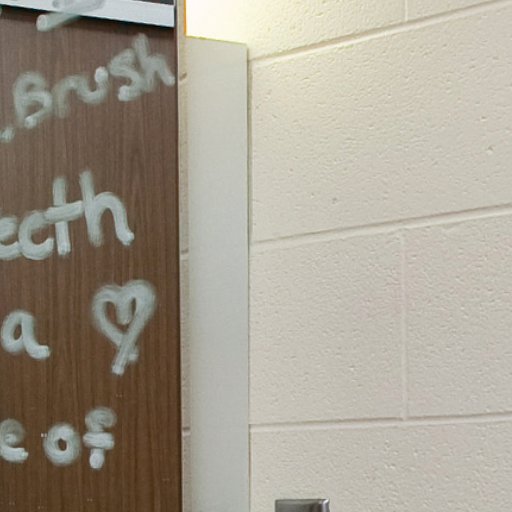 Brush
eeth
a
e of